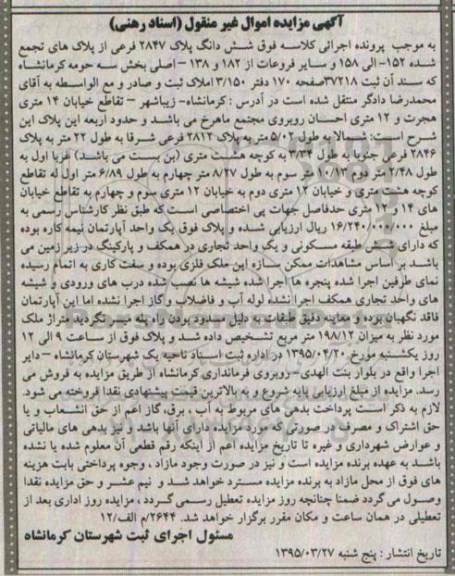 آگهی مزایده اموال غیر منقول (اسناد رهنی)
به موجب پرونده اجرائی کلاسه فوق شش دانگ پلاک ۲۸۴۷ فرعی از پلاک های تجمع
شده ۱۵۲-الی ۱۵۸ و سایر فروعات از ۱۸۲ و ۱۳۸ - اصلی بخش سه حومه کرمانشاه
که سند آن ثبت ۳۷۲۱۸صفحه ۱۷۰ دفتر ۳/۱۵۰ املاک ثبت و صادر و مع الواسطه به آقای
محمدرضا دادگر منتقل شده است در آدرس : کرمانشاه- زیباشهر - تقاطع خیابان ۱۴ متری
هجرت و ۱۲ متری احسان روبروی مجتمع ماهرخ می باشند و حدود اربعه این پلاک این
شرح است: شمالا به طول ۵/۰۲ متر به پلاک ۲۸۱۲ فرعی شرقا به طول ۲۲ متر به پلاک
۲۸۴۶ فرعی جنوبا به طول ۳/۳۴ به کوچه هشت متری (بن بست می باشد) غربا اول به
طول ۲/۴۸ متر دوم ۱۰/۱۳ متر سوم به طول ۸/۲۷ متر چهارم به طول ۶/۸۹ متر اول له تقاطع
کوچه هشت متری و خیابان ۱۲ متری دوم به خیابان ۱۲ متری سوم و چهارم به تقاطع خیابان
های ۱۴ و ۱۲ متری حدفاصل جهات پی اختصاصی است که طبق نظر کارشناس رسمی به
مبلغ ۱۶/۲۴۰/۰۰۰/۰۰۰ ریال ارزیابی شده و پلاک فوق یک واحد آپارتمان نیمه کاره بوده
که دارای شش طبقه مسکونی و یک واحد تجاری در همکف و پارکینگ در زیر زمین می
باشد بر اساس مشاهدات ممکن سازه این ملک فلزی بوده و سفت کاری به اتمام رسیده
نمای طرفین اجرا شده پنجره ها اجرا شده شیشه ها نصب شده درب های ورودی و شیشه
های واحد تجاری همکف اجرا نشده لوله آب و فاضلاب و گاز اجرا نشده اما این آپارتمان
فاقد نگهبان بوده و معاینه دقیق طبقات به دلیل مسدود بودن راه پله میسر نگردید متراژ ملک
مورد نظر به میزان ۱۹۸/۱۲ متر مربع تشخیص داده شد و پلاک فوق از ساعت ۹ الی ۱۲
روز یکشنبه مورخ ۱۳۹۵/۰۴/۲۰ در اداره ثبت اسناد ناحیه یک شهرستان کرمانشاه - دایر
اجرا واقع در بلوار بنت الهدی - روبروی فرمانداری کرمانشاه از طریق مزایده به فروش می
رسد. مزایده از مبلغ ارزیابی پایه شروع و به بالاترین قیمت پیشنهادی نقدا فروخته می شود.
لازم به ذکر است پرداخت بدهی های مربوط به آب ، برق، گاز اعم از حق انشعاب و یا
حق اشتراک و مصرف در صورتی که مورد مزایده دارای آنها باشد و نیز بدهی های مالیاتی
و عوارض شهرداری و غیره تا تاریخ مزایده اعم از اینکه رقم قطعی آن معلوم شده یا نشده
باشد به عهده برنده مزایده است و نیز در صورت وجود مازاد ، وجوه پرداختی بابت هزینه
های فوق از محل مازاد به برنده مزایده مسترد خواهد شد و نیم عشر و حق مزایده نقدا
وصول می گردد ضمنا چنانچه روز مزایده تعطیل رسمی گردد ، مزایده روز اداری بعد از
تعطیلی در همان ساعت و مکان مقرر برگزار خواهد شد. ۲۶۴۴/م الف/۱۲
مسئول اجرای ثبت شهرستان کرمانشاه
تاریخ انتشار : پنج شنبه ۱۳۹۵/۰۳/۲۷